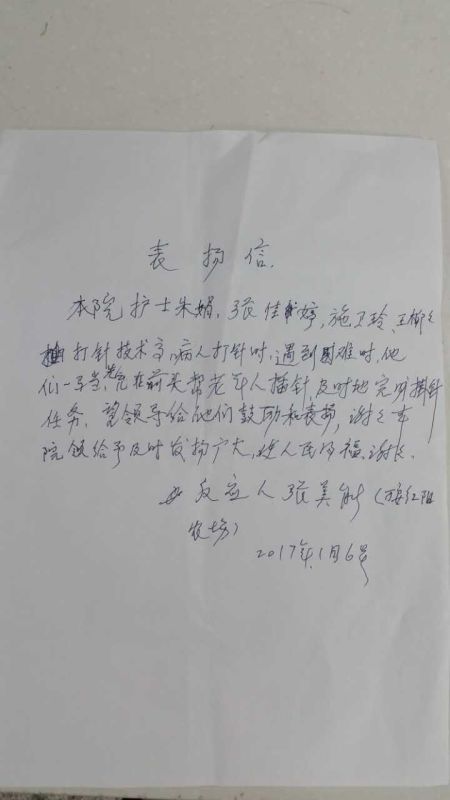 表扬信.
本院护士朱娟,张佳婷,施卫玲、王柳
打针技术高,病人打针时,遇到困难时,他
们一马当先,在前头帮老年人插针,及时地完成挂针
任务,望领导给他们鼓励和表扬,谢谢本
院领给予及时发扬广大,使人民得福,谢谢.
反应人张美(红阳
农场)
2017年.1月6号